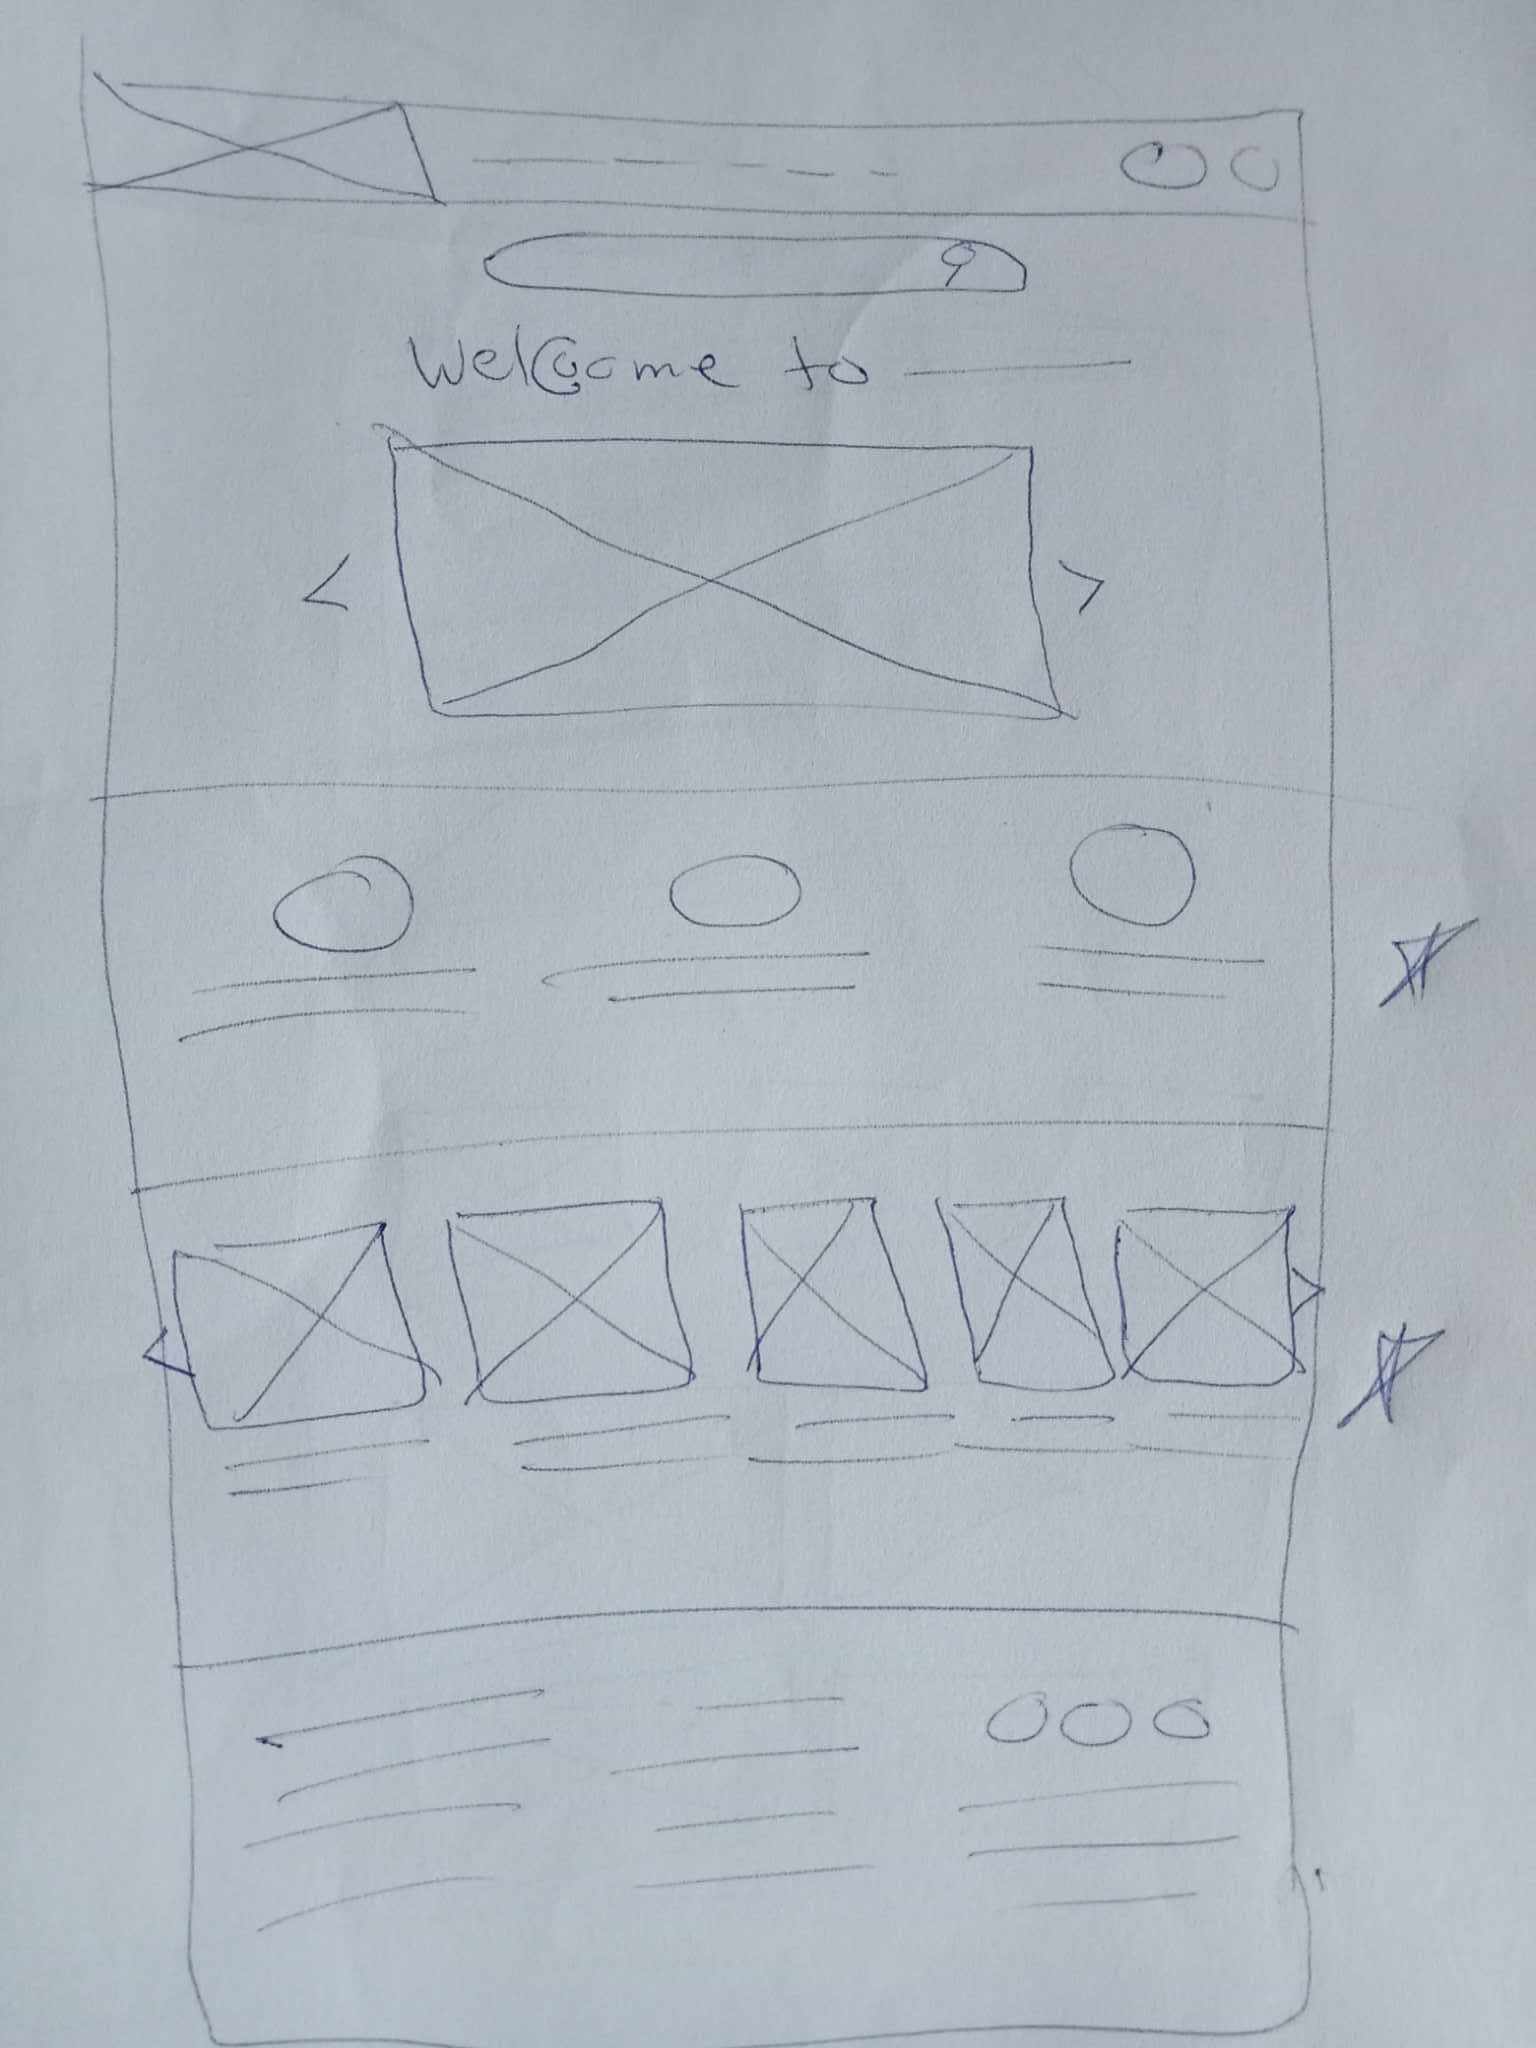 Welcome to